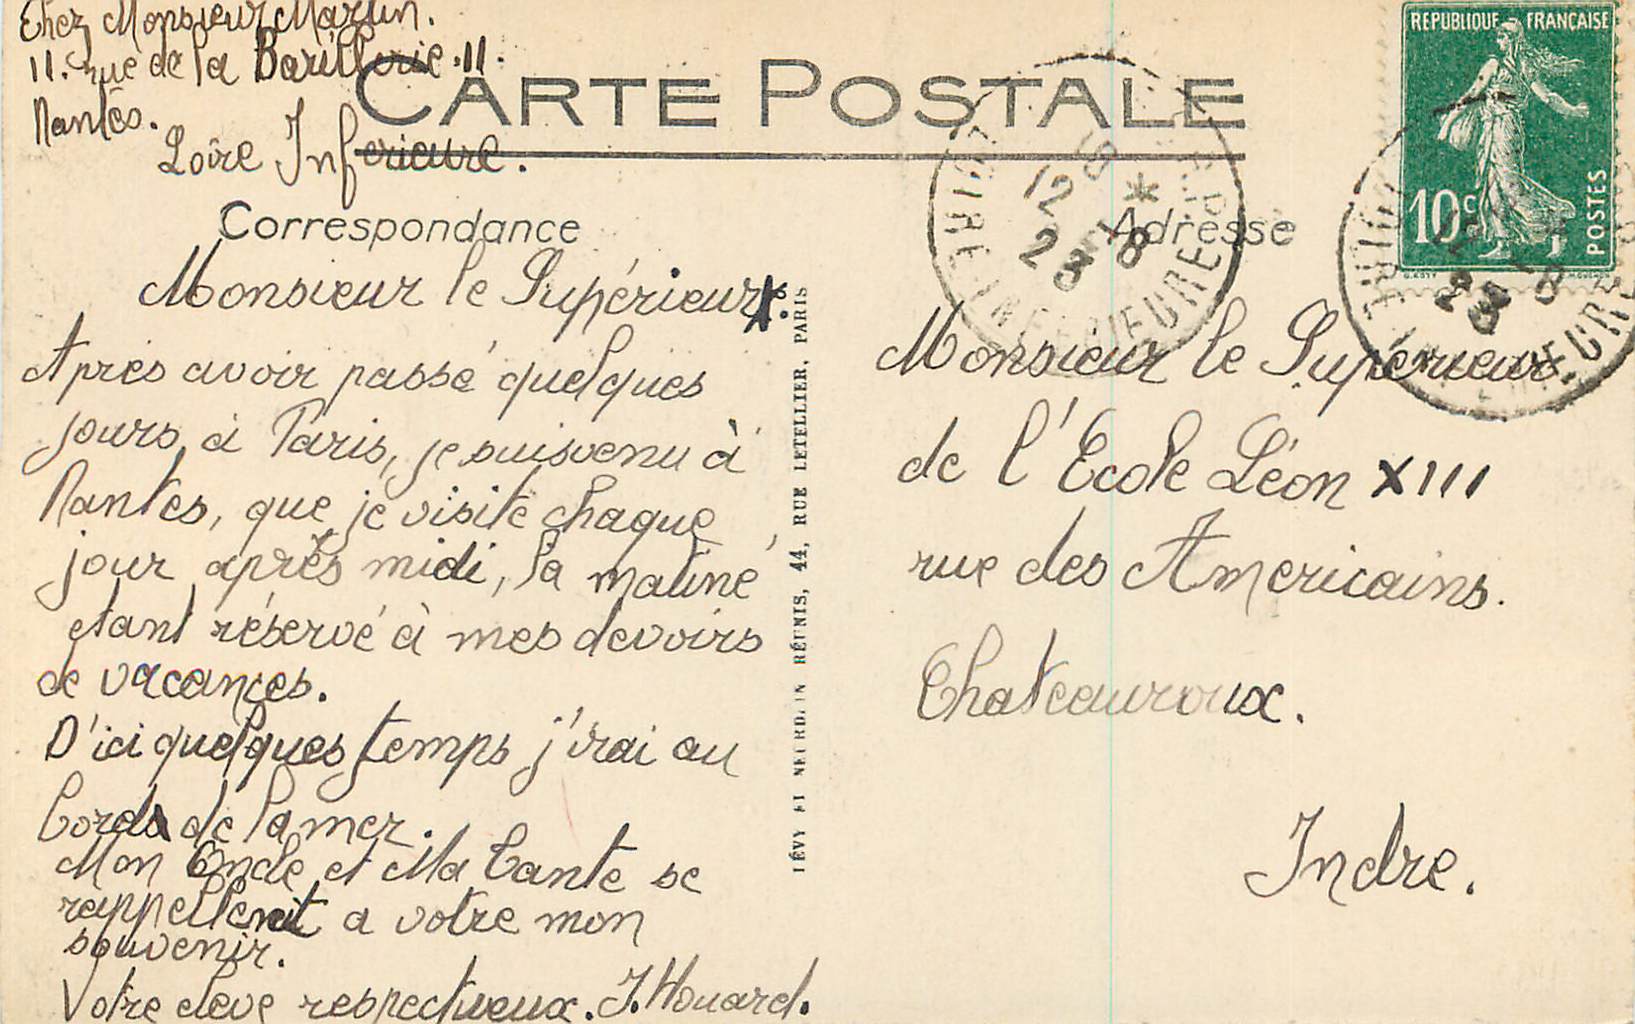 Chez Monsieur Martin.
11. rue de la Barillerie. 11.
Nantes.
Loire Inferieure.
CARTE POSTALE
Correspondance
Monsieur le Supérieur.
Après avoir passé quelques
jours, à Paris, je suis venu à
Nantes, que je visite chaque
jour après midi, la matiné
etant réservé à mes devoirs
de vacances.
D'ici quelques temps j'irai au
bord de la mer.
Mon Oncle et Ma Tante se
rappellent a votre mon
souvenir.
Votre eleve respectueux. J. Houard.
LÉVY ET NEURDEIN RÉUNIS, 44, RUE LETELLIER, PARIS
Adresse
Monsieur le Supérieur
de l'Ecole Léon XIII
rue des Americains.
Chateauroux.
Indre.
REPUBLIQUE FRANÇAISE
10c
POSTES
LOIRE INFERIEURE
12
8
23